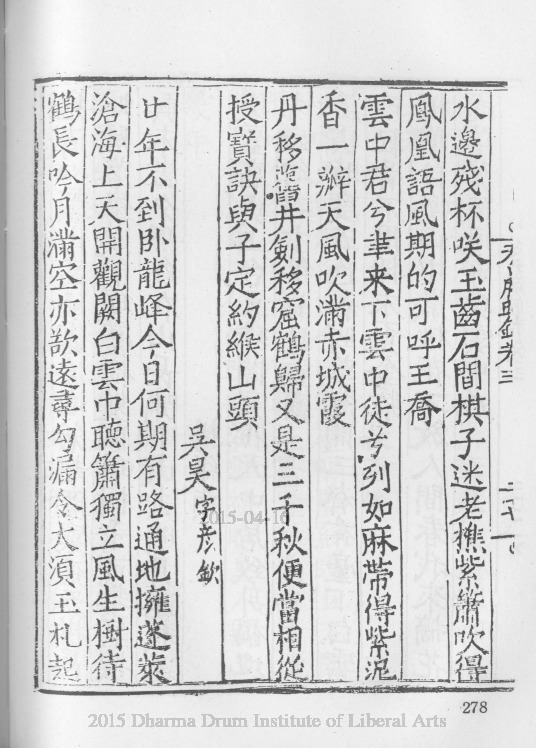 卷三
水邊殘杯咲玉齒石間棋子迷老樵紫簫吹得
鳳凰語風期的可呼王喬
雲中君兮羣来下雲中徒兮列如麻帶得紫泥
香一瓣天風吹滿赤城霞
丹移舊井劍移窟鶴歸又是三千秋便當相從
授寶訣與子定約緱山頭
吳昊字彥欽
廿年不到卧龍峰今日何期有路通地擁蓬萊
滄海上天開觀闕白雲中聽簫獨立風生樹待
鶴長吟月滿空亦欲遠尋勾漏令大須玉札起
2015-04-16
278
2015 Dharma Drum Institute of Liberal Arts